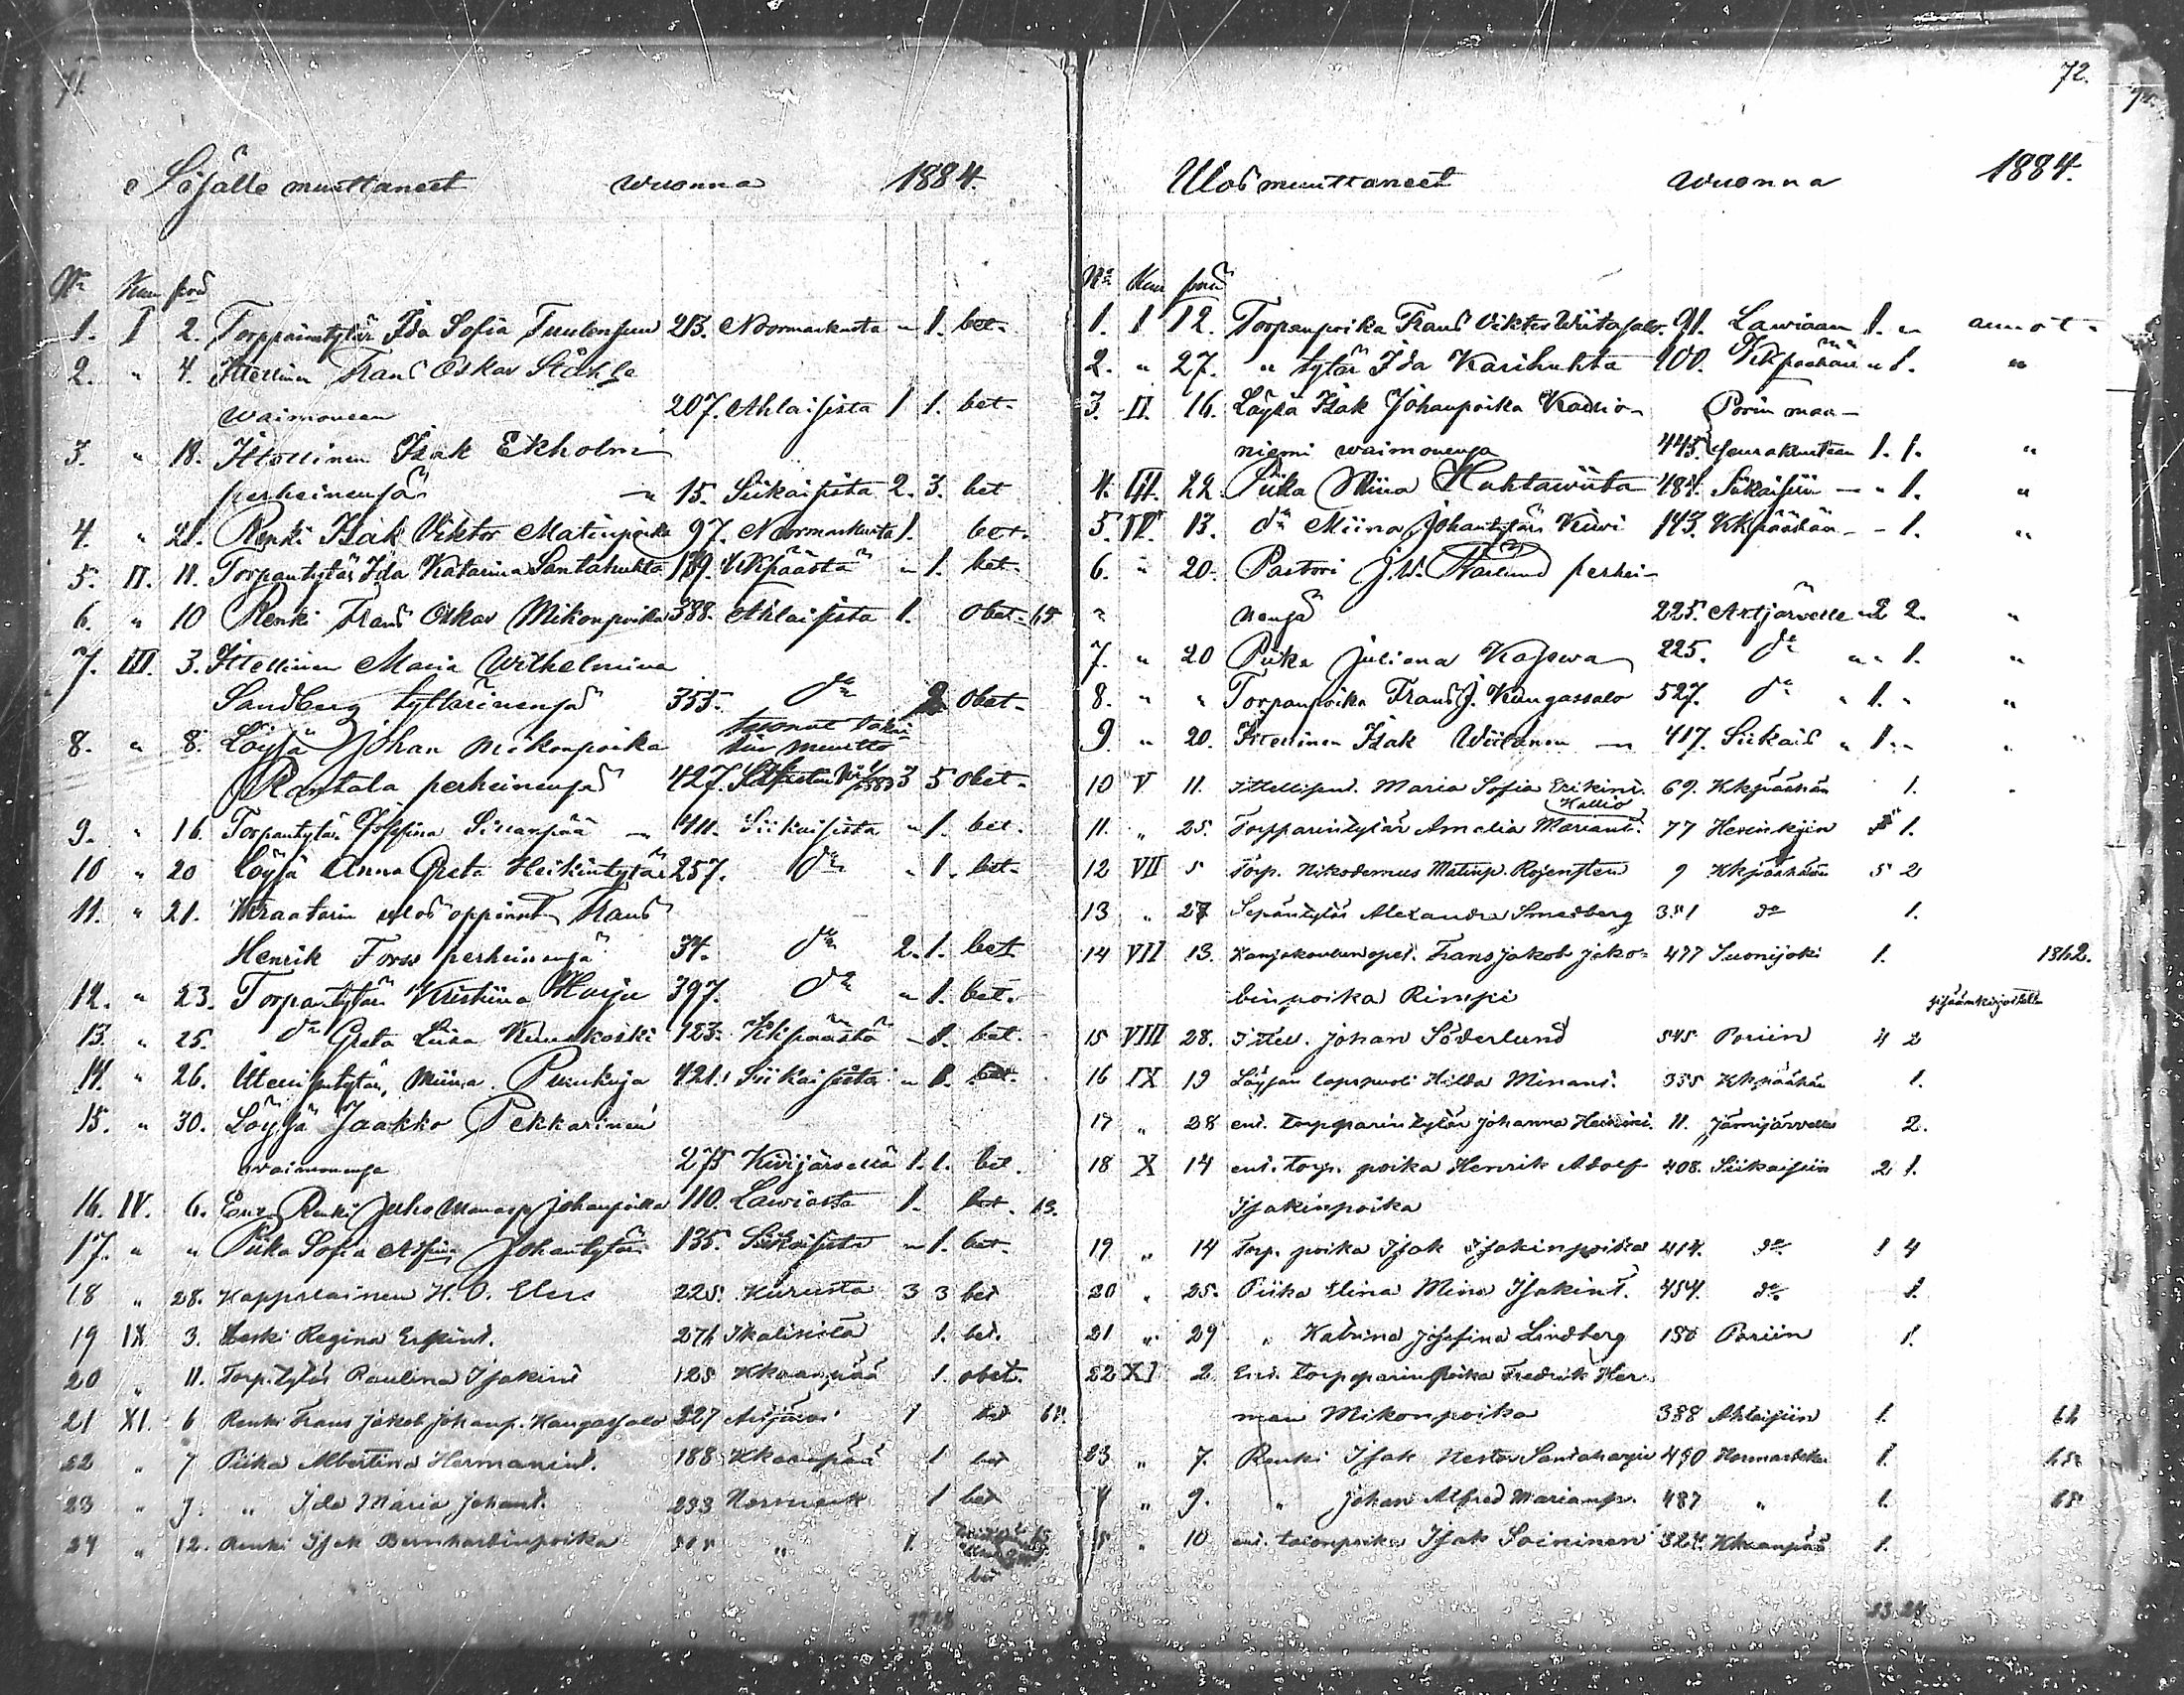 71.
Sisälle muuttaneet wuonna 1884.
No Kuu pvä
1. I 2. Torpparintytär Ida Sofia Tuulensuu 213. Noormarkusta " 1. bet.
2. " 4. Itsellinen Frans Oskar Ståhle
waimoneen 207. Ahlaisista 1 1. bet.
3. " 18. Itsellinen Isak Ekholm
perheinensä 15. Siikaisista 2. 3. bet
4. " 21. Renki Isak Viktor Matinpoika 97. Noormarkusta 1. bet.
5. II. 11. Torpantytär Ida Katarina Santahuhta 189. KKpäästä " 1. bet.
6. " 10 Renki Frans Oskar Mikonpoika 388. Ahlaisista 1. obet. 65
7. III. 3. Itsellinen Maria Wilhelmina
Sandberg tyttärinensä 355. do 2 obet.
8. " 8. Löysä Johan Mikonpoika
Rantala perheinensä 427. 3 5 obet.
9. " 16. Torpantytär Josefina Sillanpää 411. Siikaisista " 1. bet.
10 " 20 Löysä Anna Greta Heikintytär 257. do " 1. bet.
11. " 21. Kraatarin ulos oppinut Frans
Henrik Forss perheinensä 34. do 2. 1. bet
12. " 23. Torpantytär Kristiina Harju 397. do " 1. bet.
13. " 25. do Greta Liisa Kiuukoski 123. Kkpäästä 1. bet.
14. " 26. Miina 421. Siikaisista " 1. bet.
15. " 30. Löysä Jaakko Pekkarinen
waimonensa 275 Kivijärveltä 1. 1. bet.
16. IV. 6. Renki Juho Manasse Johanpoika 110. Lawiasta 1. bet. 13.
17. " " Piika Sofia Johantytär 135. Siikaisista " 1. bet.
18 " 28. Kappalainen H. O. Elers 225. Kurusta 3 3 bet
19 IX 3. Leski Regina 276 Ikalisista 1. bet.
20 " 11. Torp.tytär Paulina Isakint 125 Kkaanpää 1. obet.
21 XI. 6 Renki Frans Jakob Johanp. Kangassalo 227 Artjärvi 1 bet 61.
22 " 7 Piika Albertina Hermanint. 188 Kkaanpää 1 bet
23 " 7. " Ida Maria Johant. 233 Normark 1 bet
24 " 12. Renki Isak Bernhardinpoika " 1. bet
72.
Ulosmuuttaneet wuonna 1884.
No Kuu pvä
1. I 12. Torpanpoika Frans Viktor Wiitasalo. 91. Lawiaan 1. " annot.
2. " 27. " tytär Ida Karihuhta 200. Kkpäähän " 1. "
3. II. 16. Löysä Isak Johanpoika Kallio- Porin maa-
niemi waimonensa 445. seurakuntaan 1. 1. "
4. III. 22. Piika Miina Huhtawiita 484. Siikaisiin " 1. "
5. IV. 13. do Miina Johantytär Kiiwi 143. Kkpäähän - 1. "
6. " 20. Pastori J. W. Warlund perhei-
" nensä 225. Artjärvelle 2 2. "
7. " 20 Piika Juliana Kaswa 225. do " " 1. "
8. " " Torpanpoika Frans J. Kangassalo 527. do " 1. " "
9. " 20. Itsellinen Isak Wiitanen 417. Siikais " 1. " "
10 V 11. Itsellisent. Maria Sofia Erikint. 69. Kkpäähän 1.
Kallio
11. " 25. Torpparintytär Amalia Mariant. 77 Helsinkiin 1.
12 VII 5 Torp. Nikodemus Matinp. Rosensten 9 Kkpäähän 5 2
13 " 27 Sepäntytär Alexandra Smedberg 351 do 1.
14 VII 13. Kansakoulunopet. Frans Jakob Jako- 477 Suonijoki 1. 1862.
binpoika Rimpi sisäänkirjoitettu
15 VIII 28. Itsell. Johan Söderlund 545 Poriin 4 2
16 IX 19 Löysän lapsipuoli Hilda Minant. 335 Kkpäähän 1.
17 " 28 ent. torpparintytär Johanna Heikint. 11. Jämijärvelle 2.
18 X 14 ent. torp. poika Henrik Adolf 408. Siikaisiin 2 1.
Isakinpoika
19 " 14 Torp. poika Isak Isakinpoika 414. do 1 4
20 " 25. Piika Elina Mina Isakint. 454. do 1.
21 " 29 " Katrina Josefina Lindberg 150 Poriin 1.
22 XI 2 Ent. torpparinpoika Fredrik Her-
man Mikonpoika 388 Ahlaisiin 1. 66
23 " 7. Renki Isak Nestor Santaharju 490 Normarkku 1. 65.
4 " 9. " Johan Alfred Marianp. 487 " 1. 65
5 " 10 ent. talonpoika Isak Soininen 324 Kkaanpää 1.
53 24